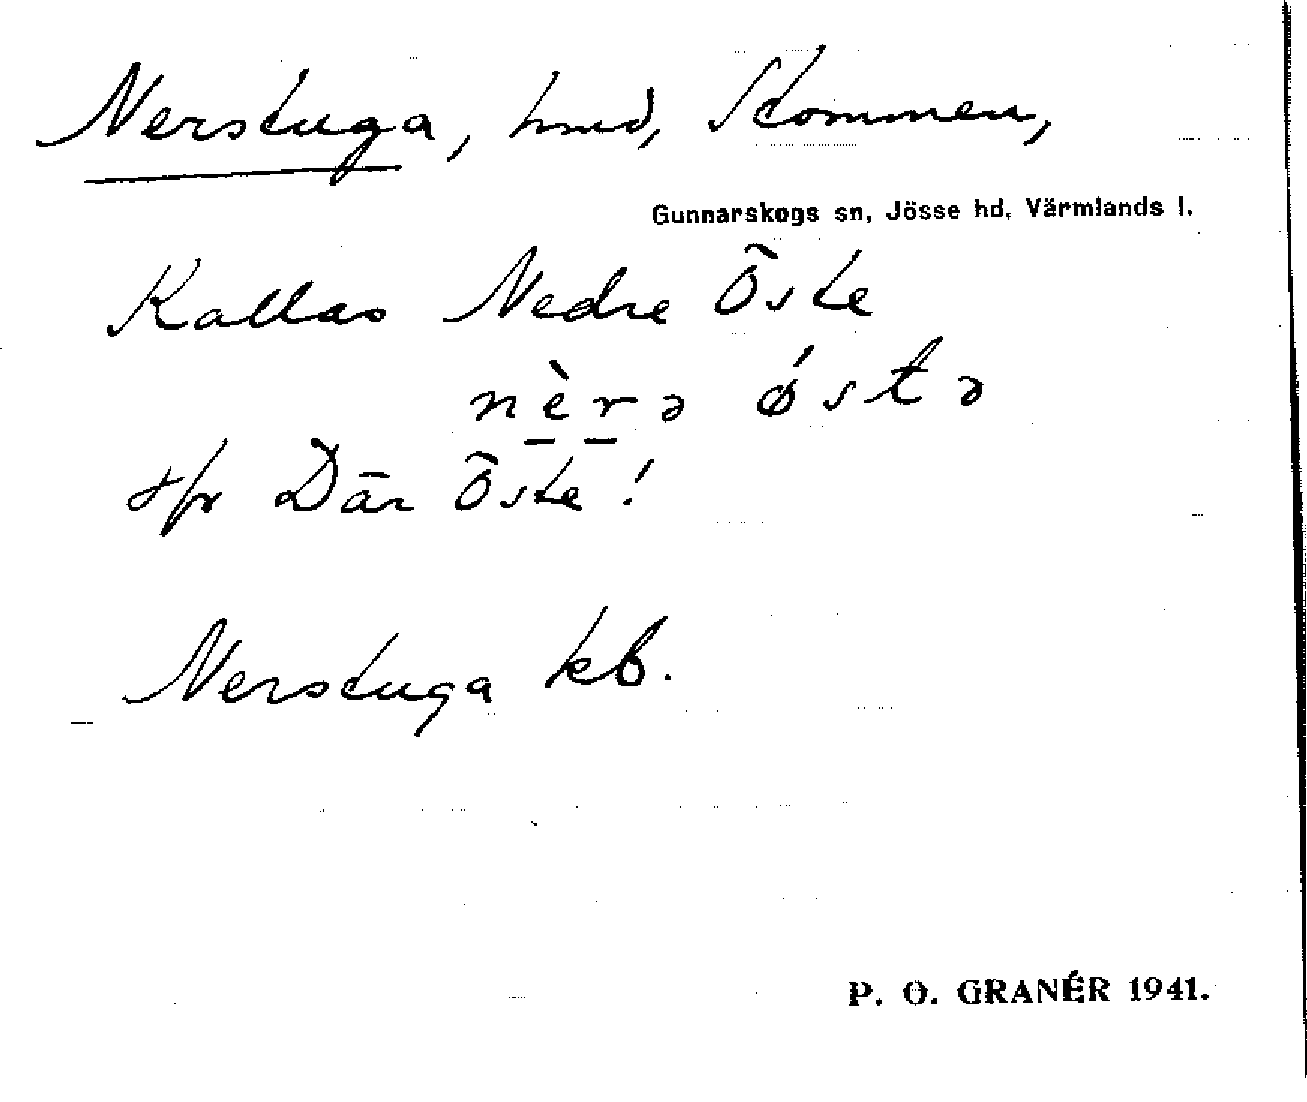 Nerstuga, hmd, Stommen,
Gunnarskogs sn, Jösse hd, Värmlands l.
Kallas Nedre Öste
nèrə östə
Där Öste!
Nerstuga kb.
P. O. GRANÉR 1941.